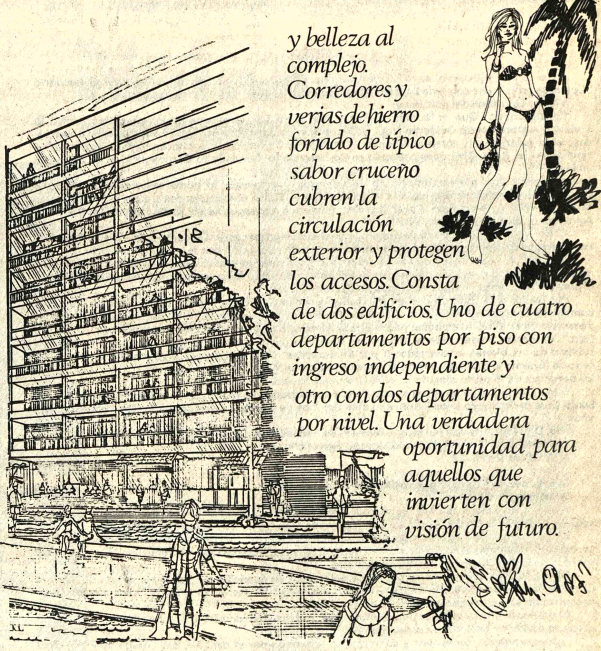 y belleza al
complejo.
Corredores y
verjas de hierro
forjado de típico
sabor cruceño
cubren la
circulación
exterior y protegen
los accesos. Consta
de dos edificios. Uno de cuatro
departamentos por piso con
ingreso independiente y
otro con dos departamentos
por nivel. Una verdadera
oportunidad para
aquellos que
invierten con
visión de futuro.